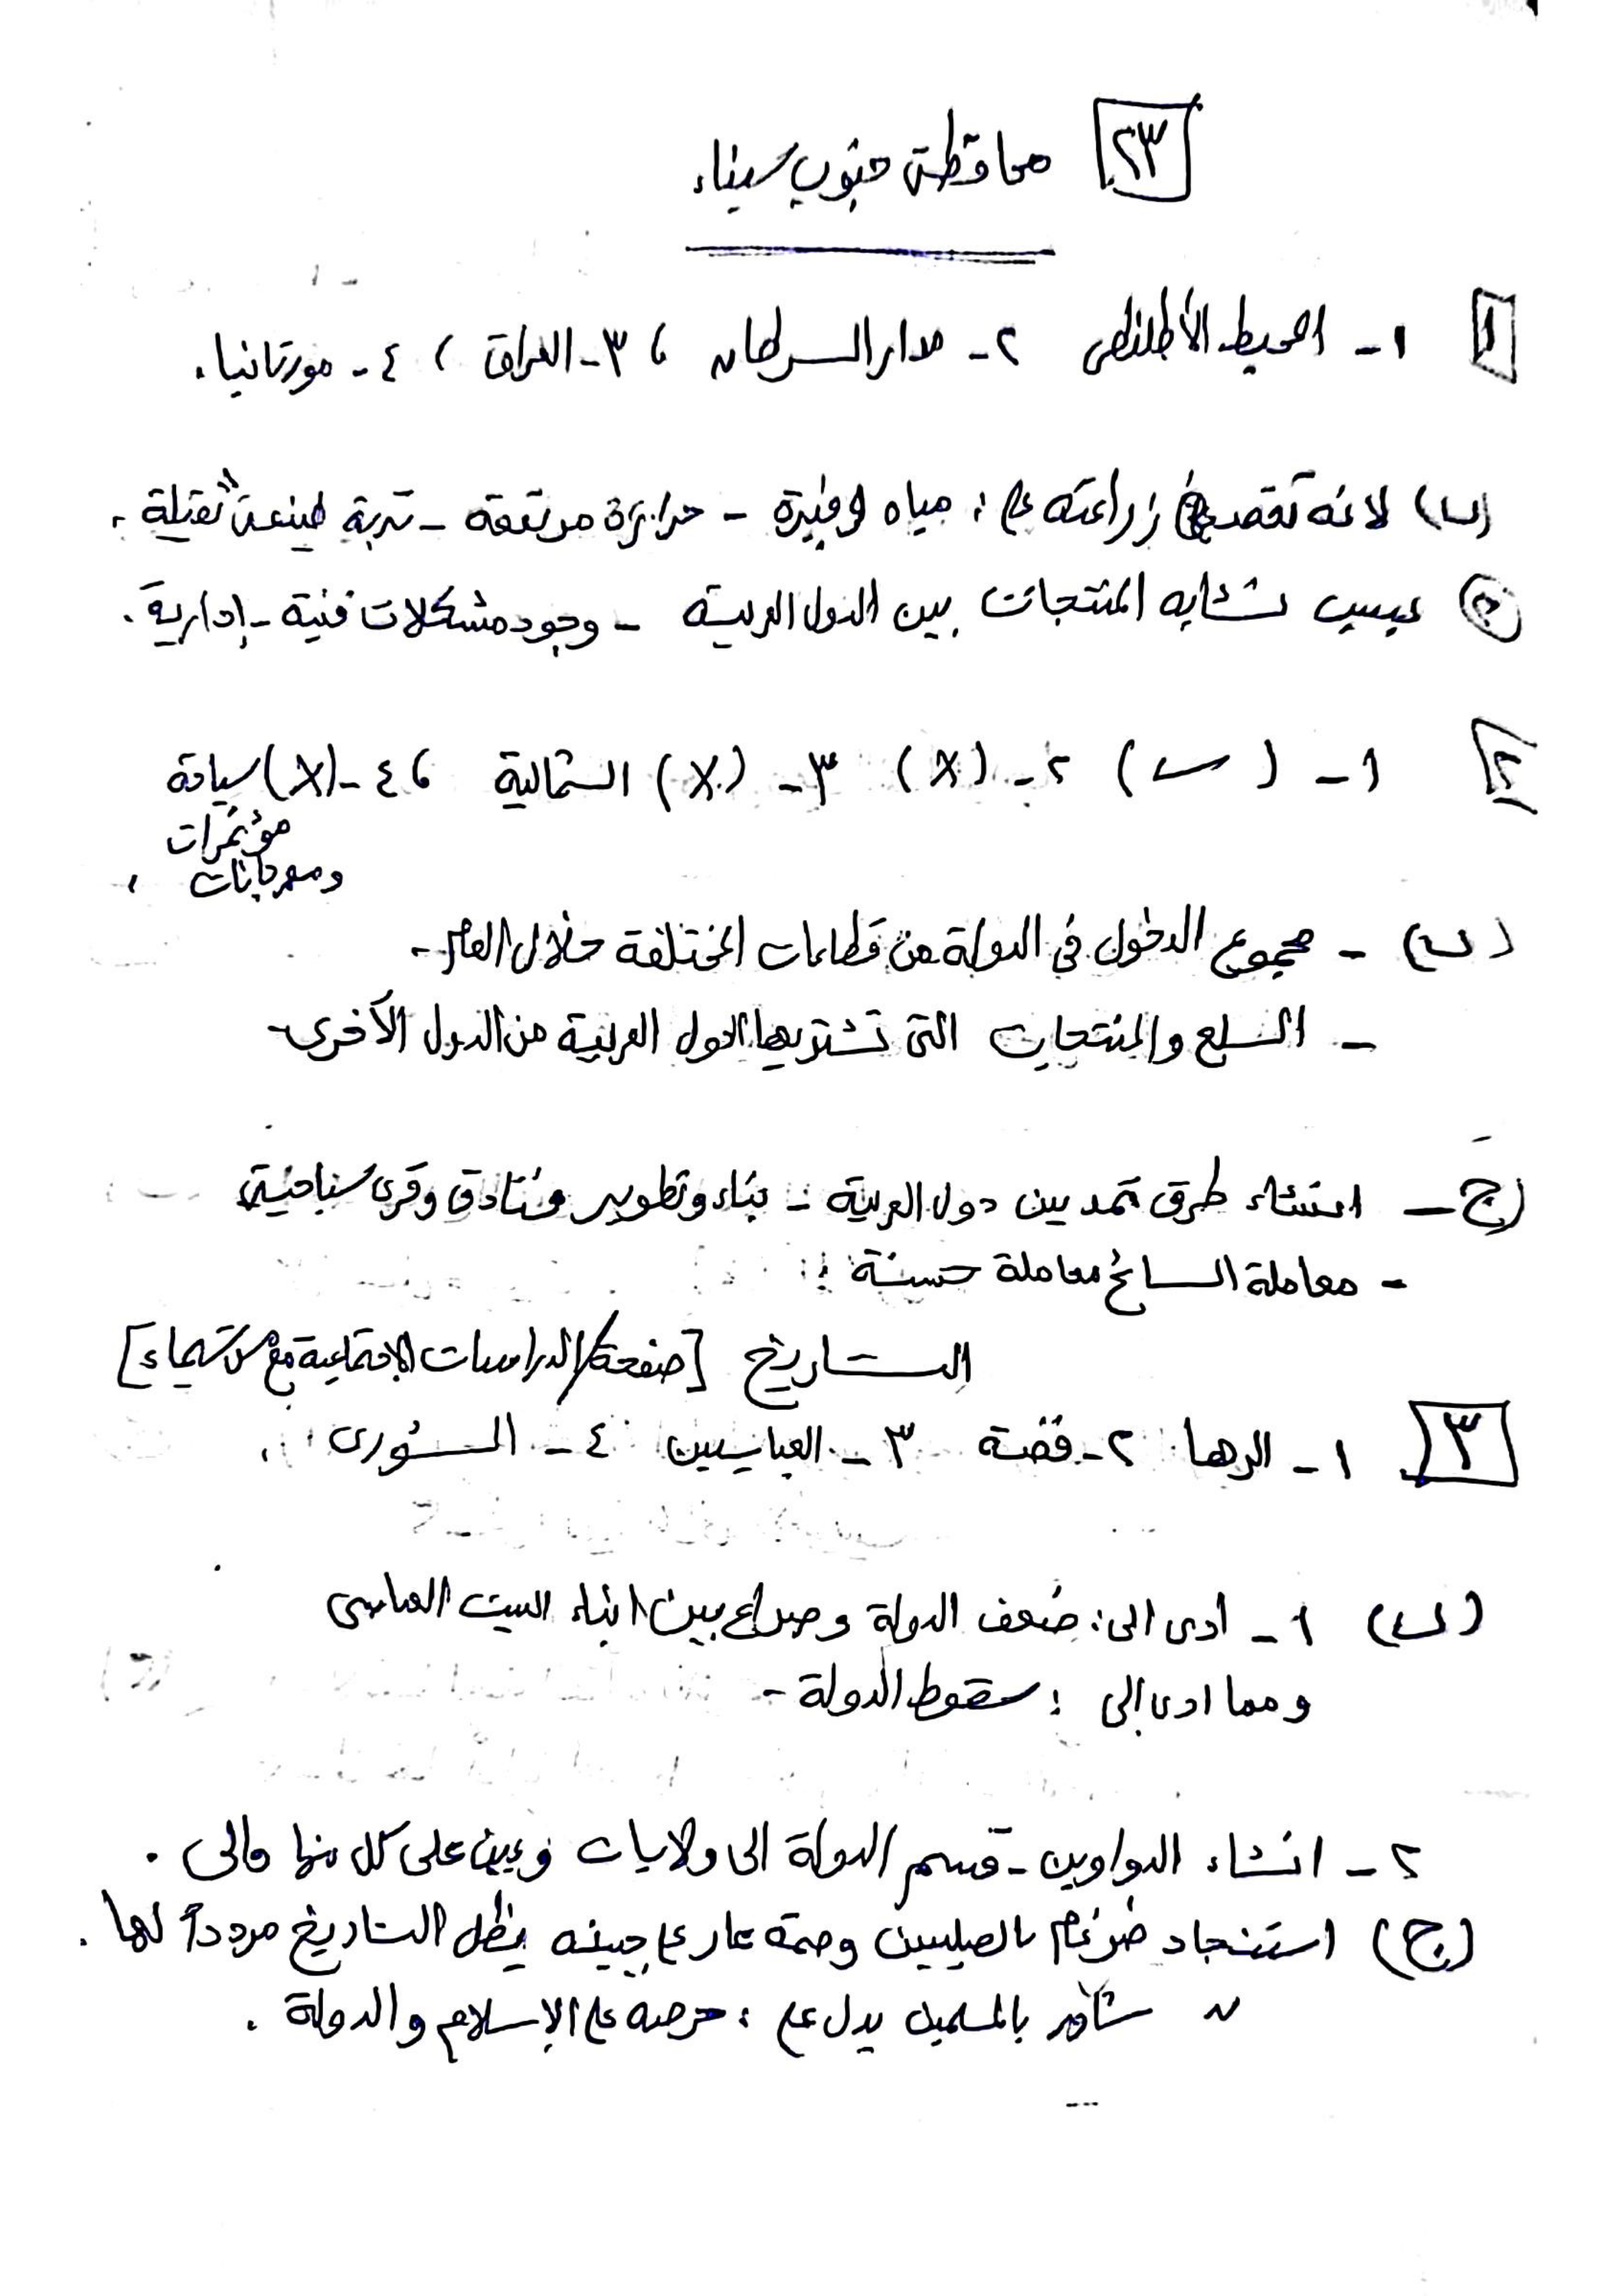 ٢٣ محافظة جنوب سيناء
١ ١- المحيط الأطلنطى ٢- مدار السرطان ، ٣- العراق ، ٤- مورتانيا .
(ب) لانه تعتمد زراعته على : مياه وفيرة - حرارة مرتفعة - تربة طينية ثقيلة .
(ج) بسبب تشابه المنتجات بين الدول العربية - وجود مشكلات فنية - إدارية .
٢ ١- ( ) ٢- (X) ٣- (X) الشمالية ، ٤- (X) سياحة
مؤتمرات
ومهرجانات .
(ب) - مجموع الدخول فى الدولة من قطاعات المختلفة خلال العام .
- السلع والمنتجات التى تشتريها الدول العربية من الدول الآخرى -
(ج - انشاء طرق تمد بين دول العربية - بناء وتطوير فنادق وقرى سياحية
- معاملة السائح معاملة حسنة .
التاريخ [صفحة/الدراسات الاجتماعية مع مس شيماء]
٣ ١- الرها ٢- فضة ٣- العباسيين ٤- الشورى .
(ب) ١- ادى الى : ضعف الدولة وصراع بين ابناء البيت العباسى
ومما ادى إلى : سقوط الدولة -
٢- انشاء الدواوين - قسم الدولة الى ولايات وعين على كل منها والى .
(ج) استنجاد ضرغام بالصليبين وصمة عار على جبينه يظل التاريخ مردداً لها .
شاور بالمسلمين يدل على : حرصه على الإسلام والدولة .